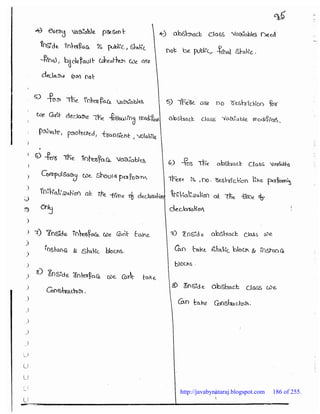 95
4) Every variable present
inside interface is public, static
final, by default whether we are
declare or not
5) For The interface variables
we Can't declare The following modifiers
private, protected, transient, volatile
6) For The interface variables
Compulsory we should perform
initialization at the time of declaration
only
7) Inside interface we Can't take
instance & static blocks.
8) Inside Interface we Can't take
Constructor.
4) abstract class variables need
not be public, final static.
5) There are no restriction for
abstract class variable modifiers.
6) For The abstract class variable
There is no restriction like performing
initialization at The time of
declaration
7) Inside abstract class we
Can take static blocks & instance
blocks.
8) Inside abstract class we
Can take Constructor.
http://javabynataraj.blogspot.com 186 of 255.